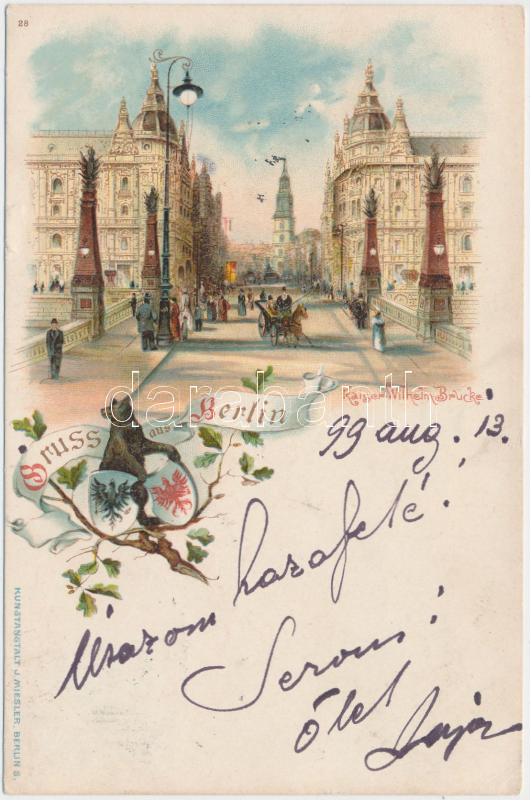 28
Kaiser Wilhelm Brücke
Gruss aus Berlin
99 aug. 13.
Utazom hazafelé!
Servus!
Ölel
KUNSTANSTALT J. MIESLER, BERLIN S.
darabanth